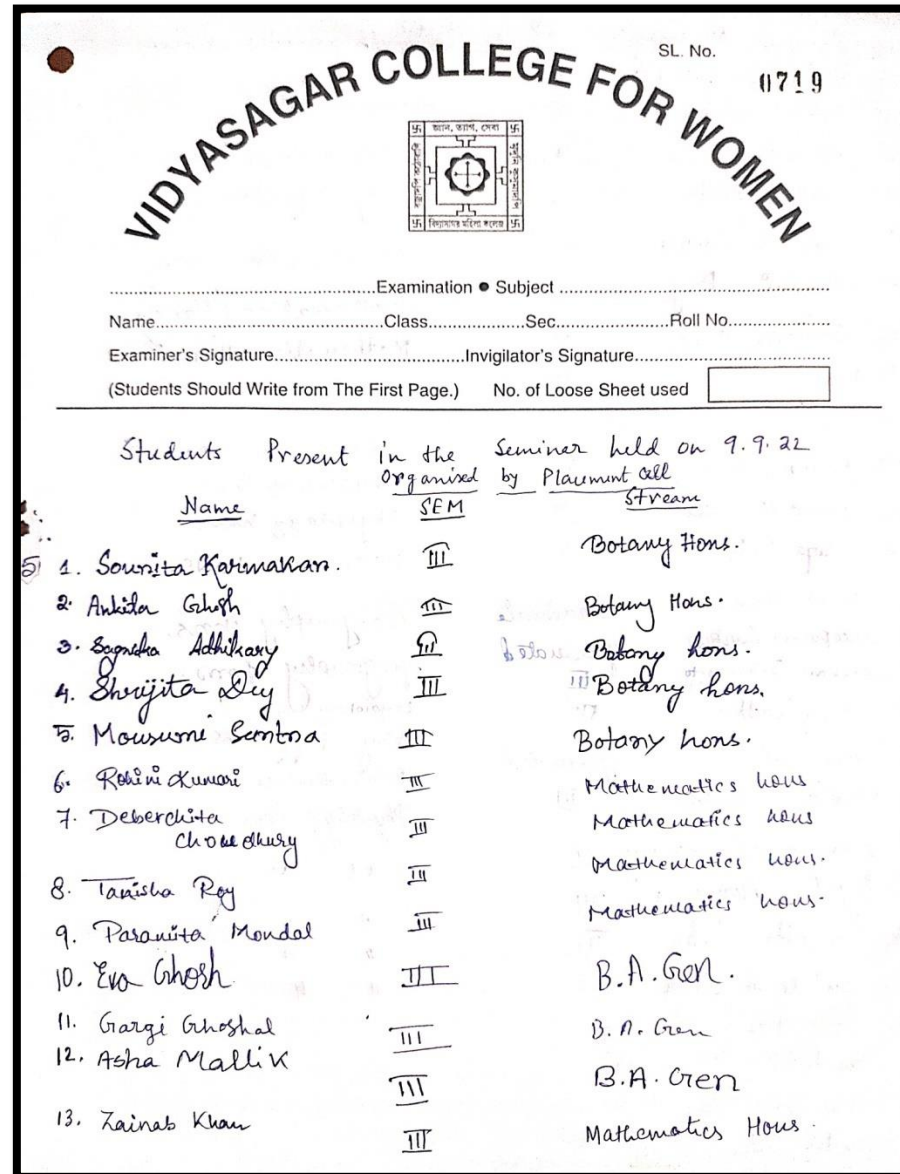 SL. No.
0719
VIDYASAGAR COLLEGE FOR WOMEN
জ্ঞান, ত্যাগ, সেবা
বিদ্যাসাগর মহিলা কলেজ
....Examination ● Subject ....
Name....Class....Sec....Roll No....
Examiner's Signature....Invigilator's Signature....
(Students Should Write from The First Page.) No. of Loose Sheet used
Students Present in the Seminer held on 9.9.22
Organised by Placement Cell
Name SEM Stream
1. Sounita Karmakar. III Botany Hons.
2. Ankita Ghosh III Botany Hons.
3. Adhikary III Botany hons.
4. Shrijita Dey III Botany hons.
5. Mousumi III Botany hons.
6. Rohini Kumari III Mathematics hons.
7. III Mathematics hons
Chowdhury
8. Tanisha Roy III Mathematics hons.
9. Paramita Mondal III Mathematics hons.
10. Eva Ghosh III B.A. Gen.
11. Gargi Ghoshal III B.A. Gen
12. Asha Mallik III B.A. Gen
13. Zainab Khan III Mathematics Hons.